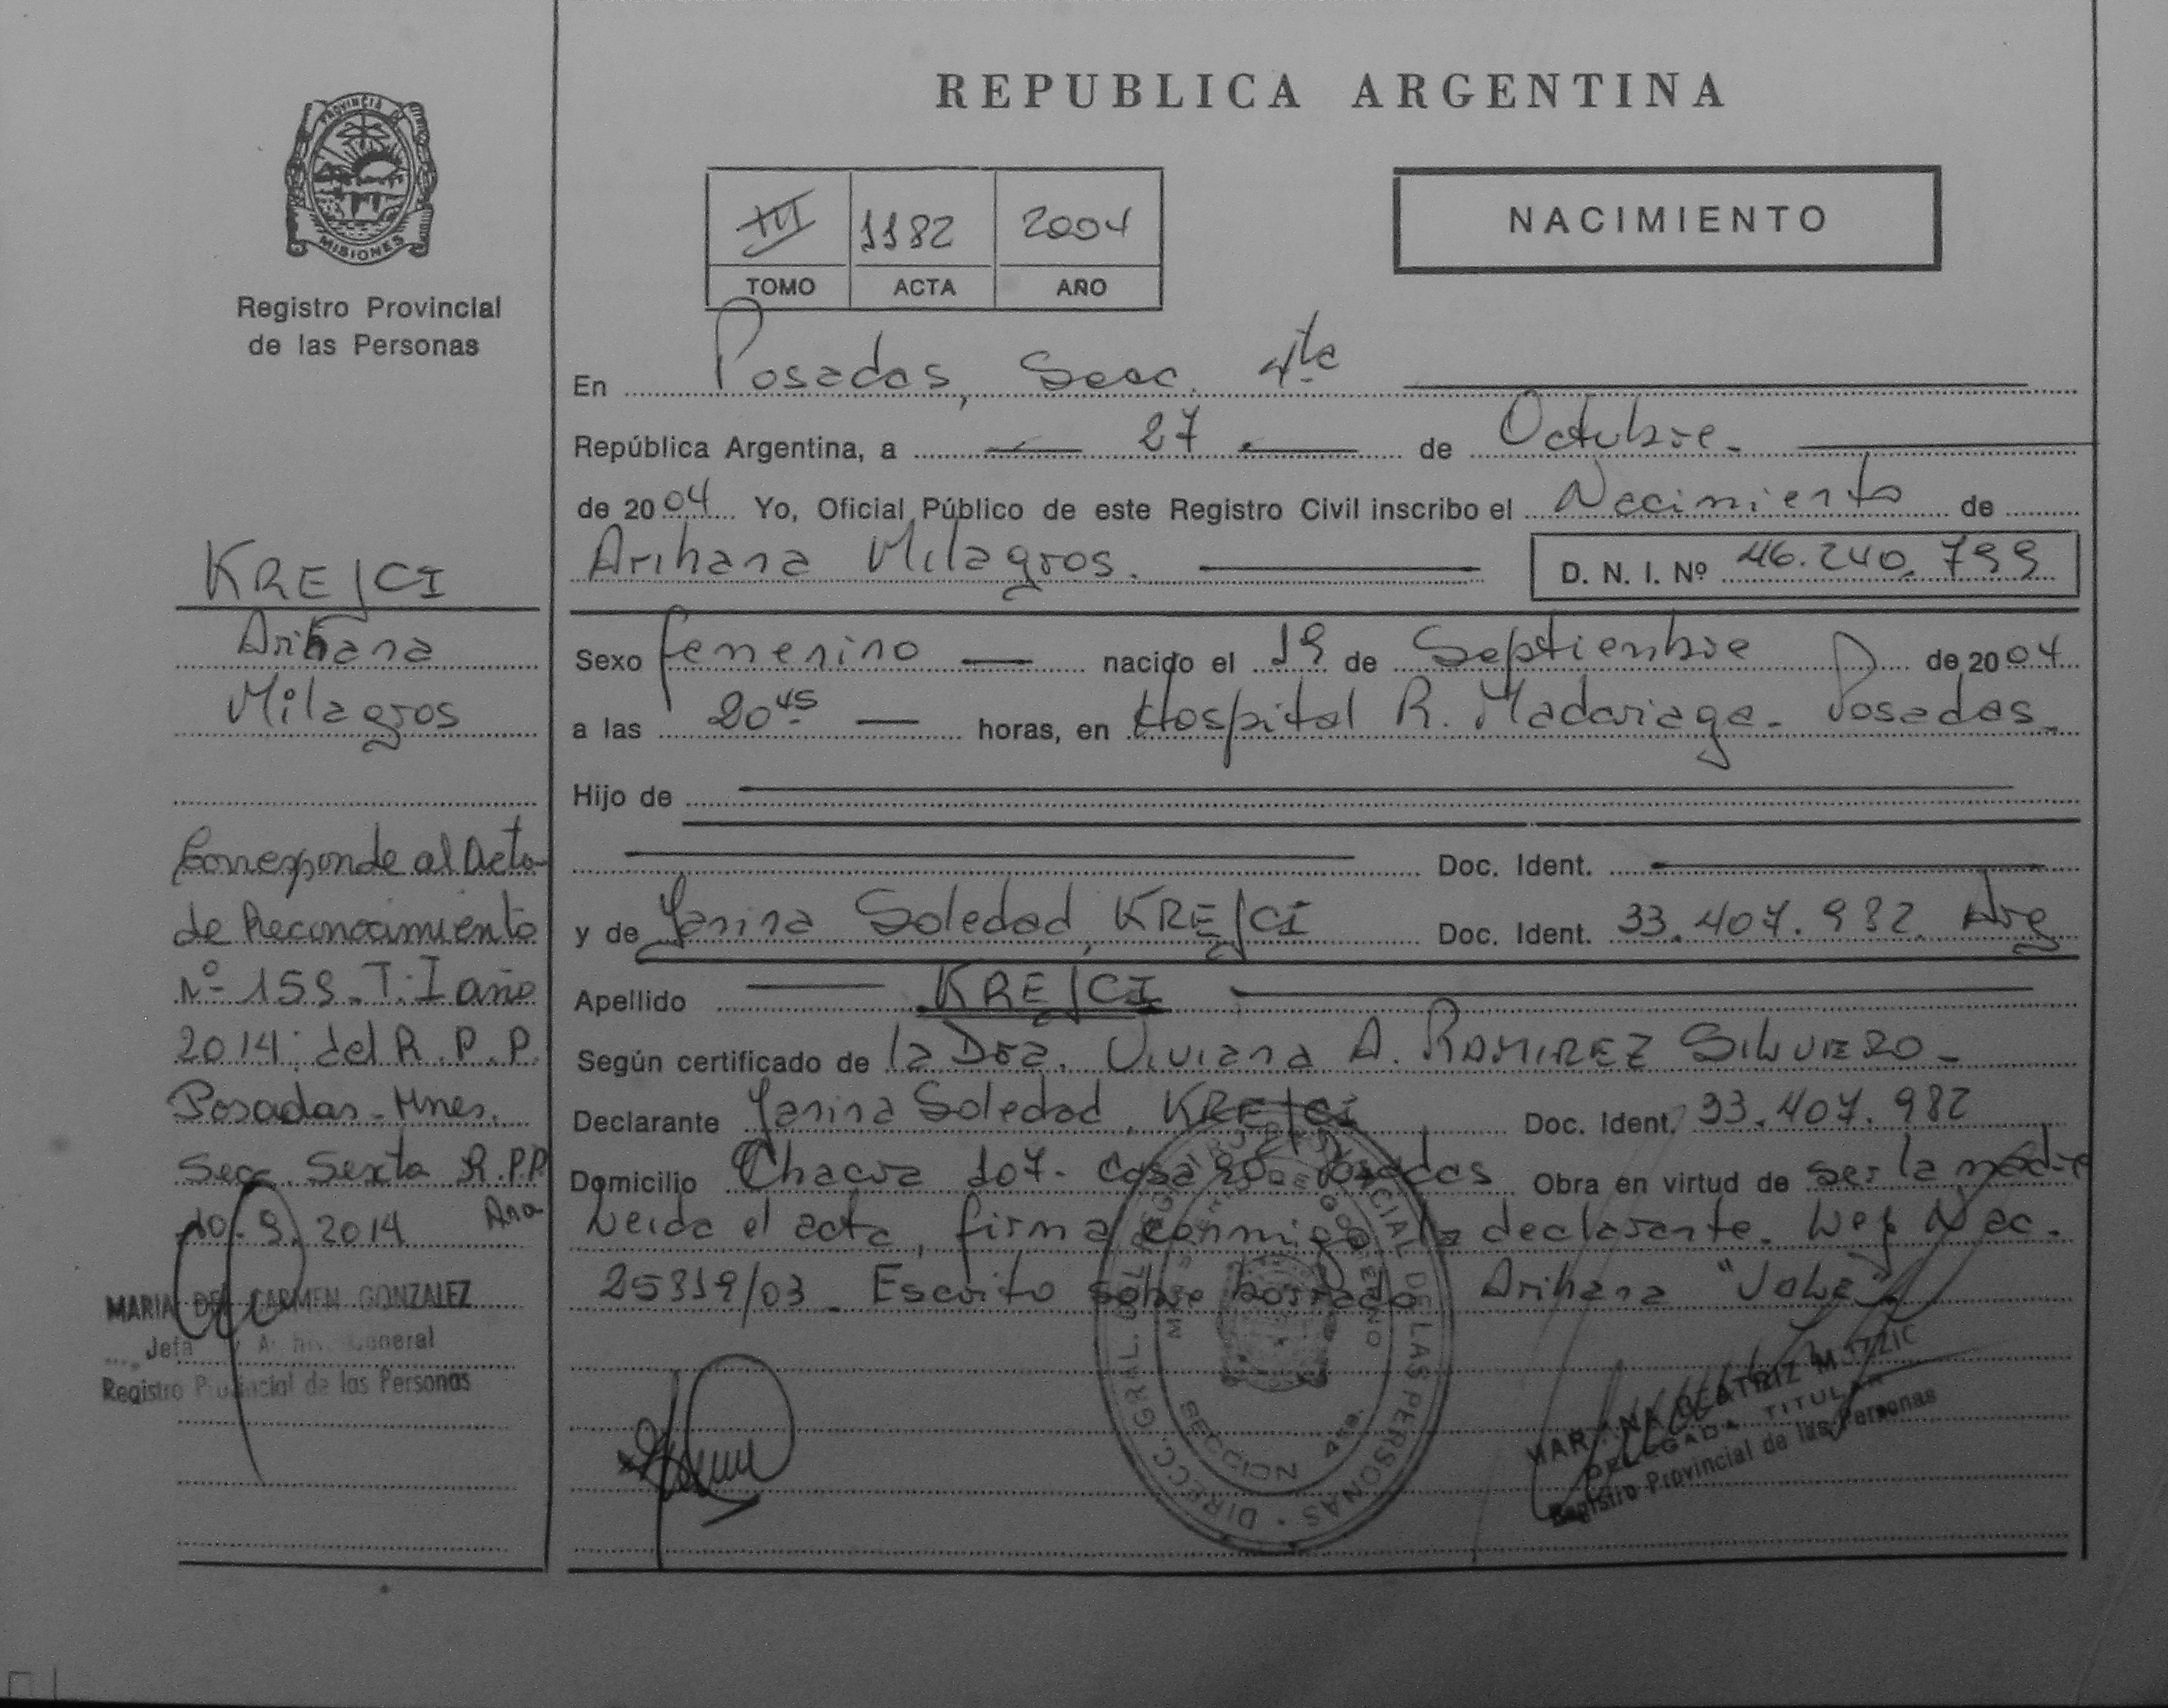 REPUBLICA ARGENTINA
PROVINCIA DE
MISIONES
Registro Provincial
de las Personas
1182 2004
TOMO ACTA AÑO
NACIMIENTO
En Posadas, Secc. 4ta
República Argentina, a 27 de Octubre
de 2004 Yo, Oficial Público de este Registro Civil inscribo el Nacimiento de
Arihana Milagros. D. N. I. Nº 46.240.799
Sexo femenino nacido el 19 de Septiembre de 2004
a las 20 45 horas, en Hospital R. Madariaga - Posadas
Hijo de
Doc. Ident.
y de Yanina Soledad, KREJCI Doc. Ident. 33.407.982 Arg
Apellido KREJCI
Según certificado de la Dra. Viviana A. RAMIREZ SILUVERO
Declarante Yanina Soledad, KREJCI Doc. Ident. 33.407.982
Domicilio Chacra 107 - Casa Posadas Obra en virtud de ser la madre
Leida el acta, firma conmigo la declarante. Ley Nac.
25819/03 - Escrito sobre borrado Arihana "Vale"
KREJCI
Arihana
Milagros
Corresponde al Acta
de Reconocimiento
Nº 159 - T: I año
2014: del R.P.P.
Posadas - Mnes.
Secc. Sexta R.P.P
10.9.2014
MARIA DEL CARMEN GONZALEZ
Jefa Archivo General
Registro Provincial de las Personas
DIRECC. GRAL. DEL REGISTRO PROVINCIAL DE LAS PERSONAS
SECCION 4ta.
MARIANA BEATRIZ
DELEGADA TITULAR
Registro Provincial de las Personas